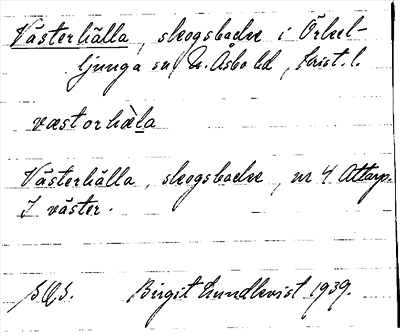 Västerhälla, skogsbacke i Örkel-
ljunga sn, N. Åsbo hd, Krist. l.
væstorhæ̀la
Västerhälla, skogsbacke, nr 4 Attarp.
I väster.
Birgit Lundkvist 1939.